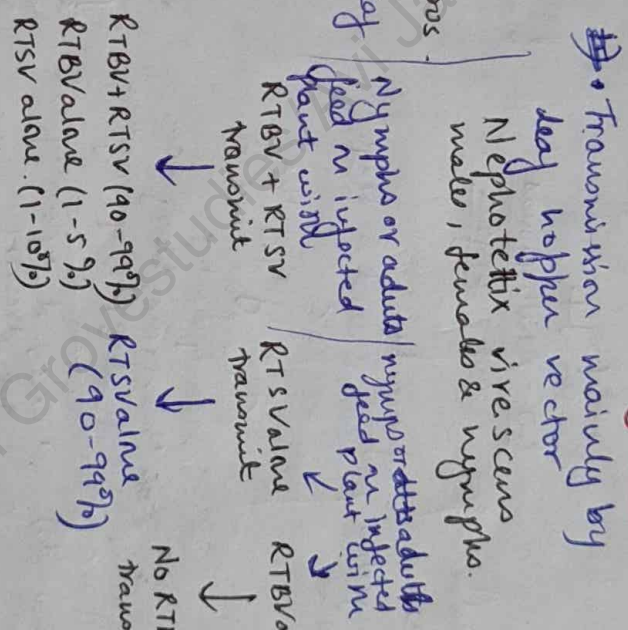 • Transmission mainly by
leaf hopper vector
Nephotettix virescens
males, females & nymphs.
ros.
Nymphs or adults
feed on infected
plant with
RTBV + RTSV
transmit
↓
RTBV+RTSV (90-99%)
RTBV alone (1-5%)
RTSV alone. (1-10%)
nymps or adults
feed on infected
plant with
RTSV alone
transmit
↓
RTSV alone
(90-99%)
RTBV
↓
No RT
trans
Grovestudies